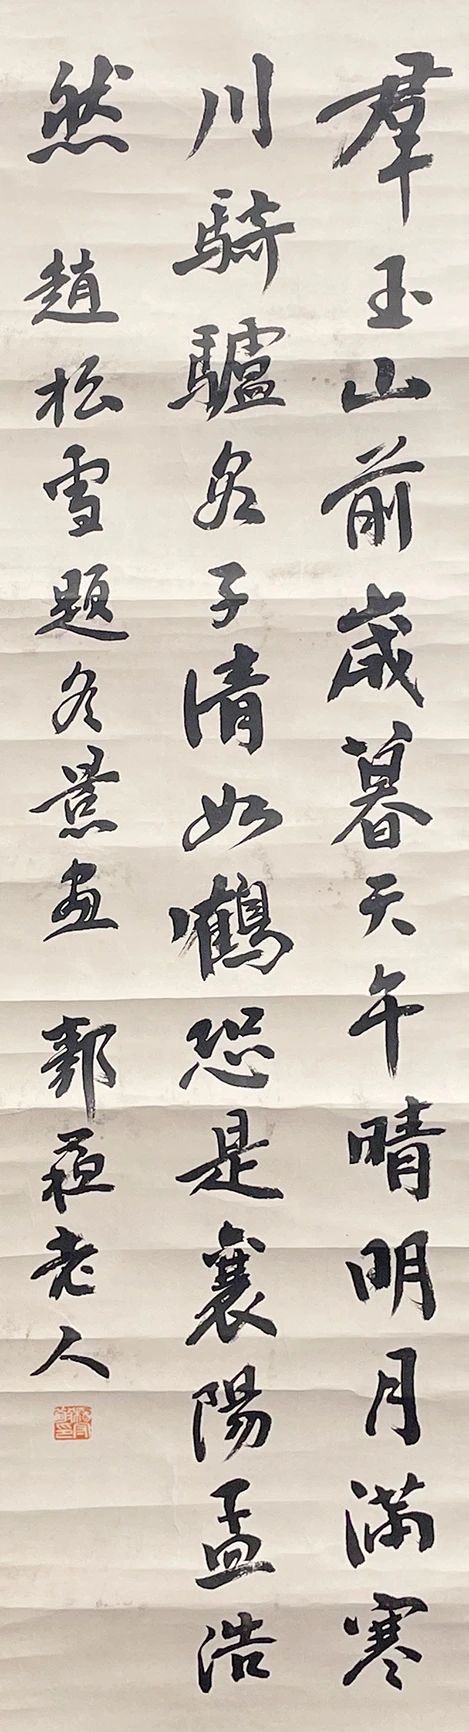 羣玉山前歲暮天午晴明月滿寒
川騎驢名子清如鶴恐是襄陽孟浩
然 趙松雪題冬景畫 鄭蘇老人